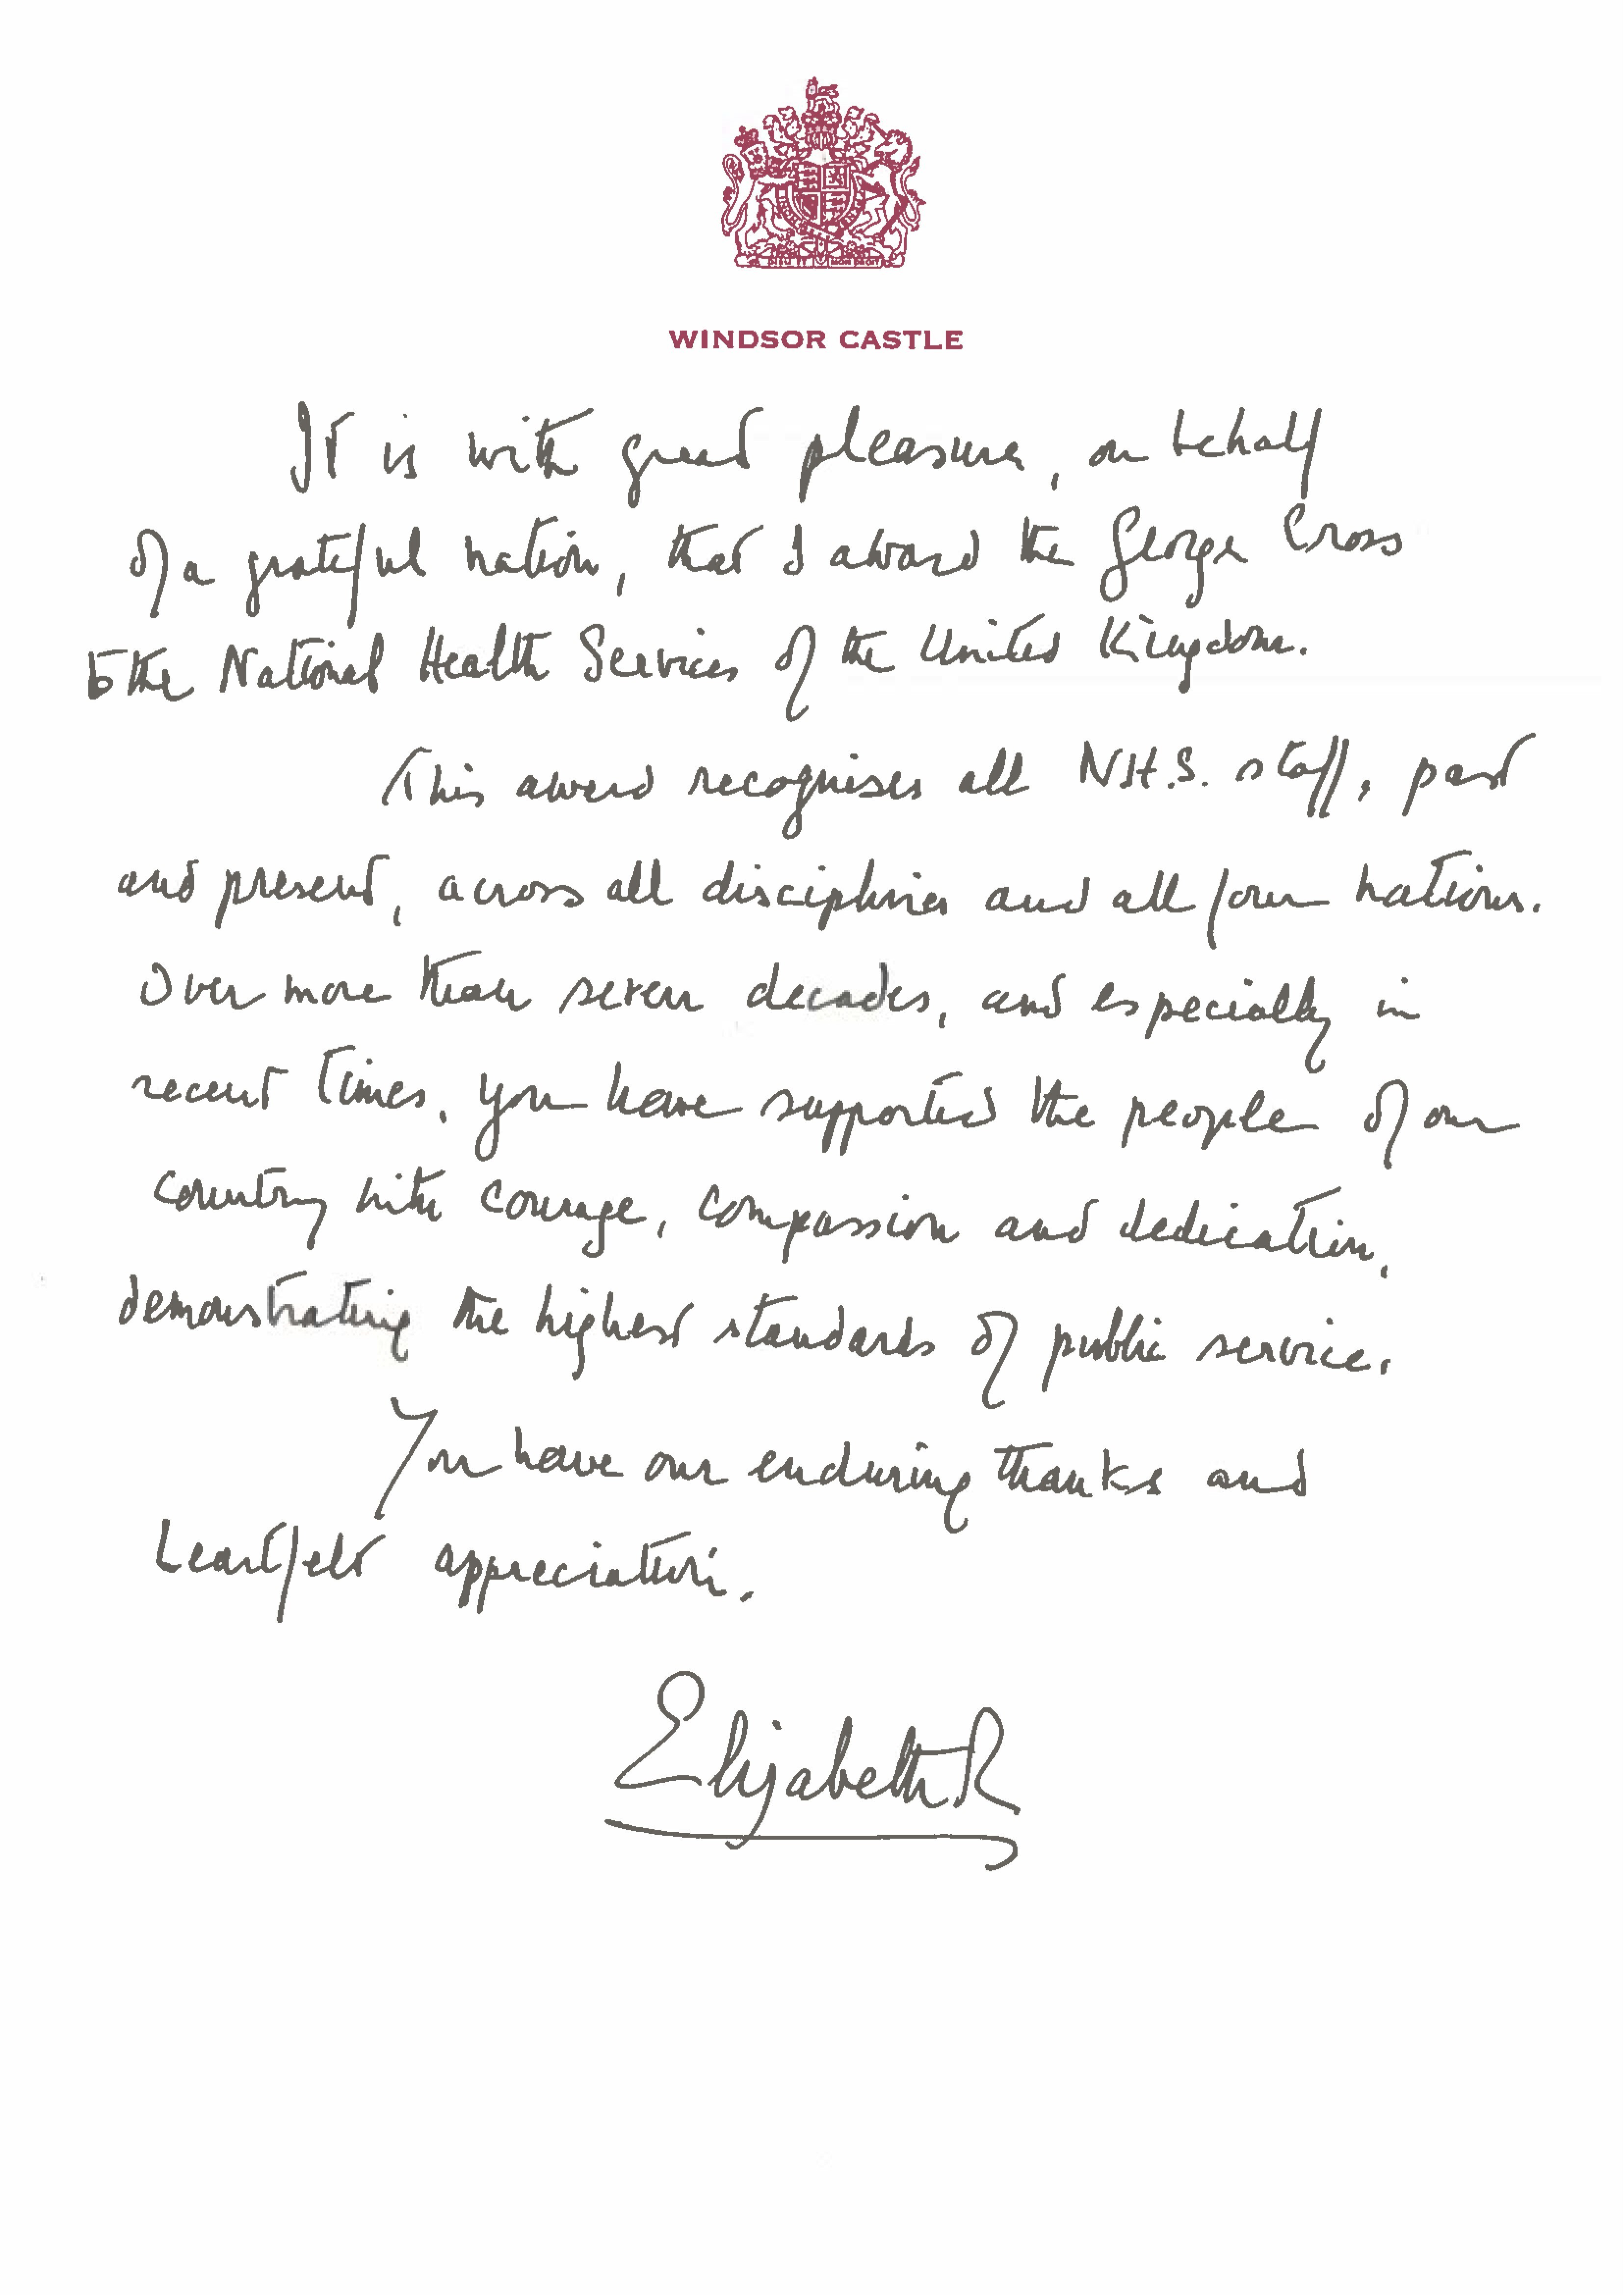 DIEU ET MON DROIT
WINDSOR CASTLE
It is with great pleasure, on behalf
of a grateful nation, that I award the George Cross
to the National Health Services of the United Kingdom.
This award recognises all N.H.S. staff, past
and present, across all disciplines and all four nations.
Over more than seven decades, and especially in
recent times, you have supported the people of our
country with courage, compassion and dedication,
demonstrating the highest standards of public service.
You have our enduring thanks and
heartfelt appreciation.
Elizabeth R